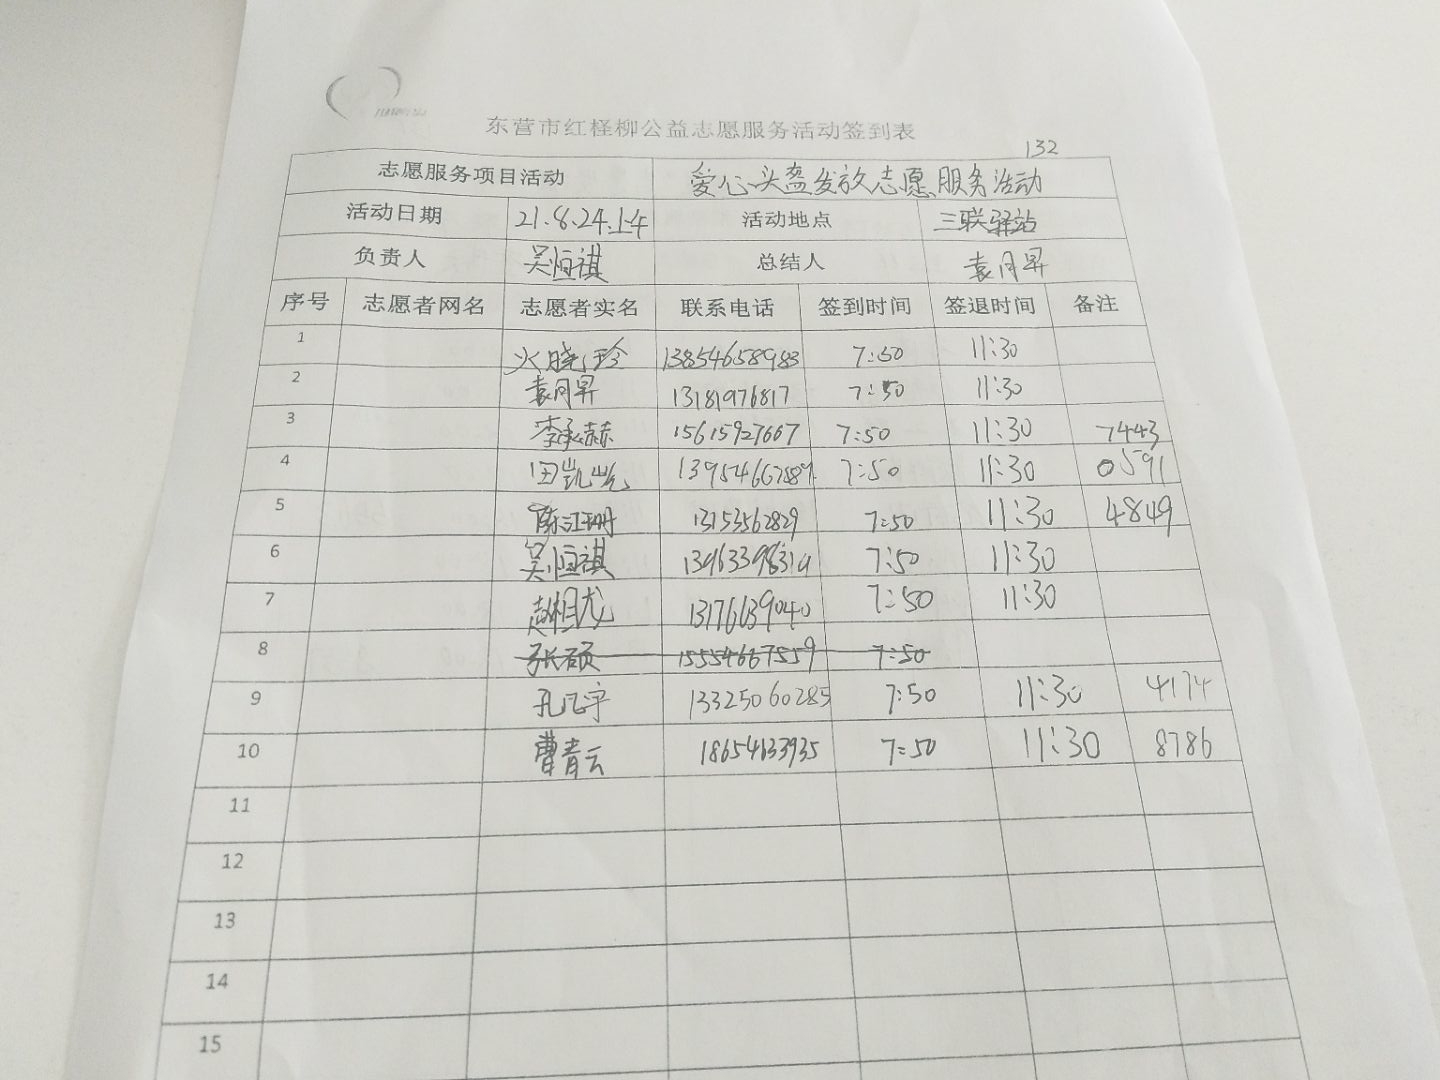 东营市红柽柳公益志愿服务活动签到表
132
志愿服务项目活动 爱心头盔发放志愿服务活动
活动日期 21.8.24.上午 活动地点 三联驿站
负责人 吴恒祺 总结人 袁月昇
序号 志愿者网名 志愿者实名 联系电话 签到时间 签退时间 备注
1 火晓玲 13854658983 7:50 11:30
2 袁月昇 13181976817 7:50 11:30
3 李承赫 15615927667 7:50 11:30 7443
4 田凯岩 7:50 11:30 0591
5 陈江珊 13153562829 7:50 11:30 4849
6 吴恒祺 7:50 11:30
7 赵相龙 13176639040 7:50 11:30
8 张硕 15554667559 7:50
9 孔凡宇 13325060285 7:50 11:30 4174
10 曹青云 18654633935 7:50 11:30 8786
11
12
13
14
15